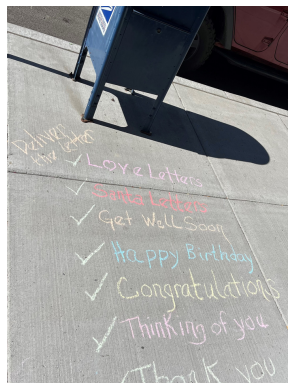 Deliver
the letter
✓ Love Letters
✓ Santa Letters
✓ Get Well Soon
✓ Happy Birthday
✓ Congratulations
✓ Thinking of you
✓ Thank you